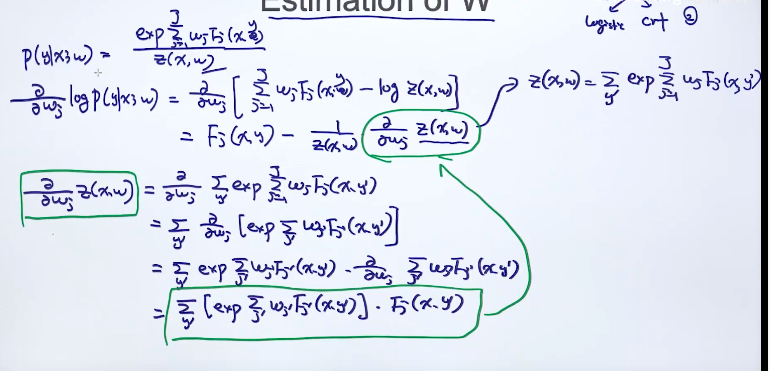 Estimation of W
Logistic crf ②
p(y|x;w) = exp Σ_{j=1}^{J} w_j F_j(x,y) / z(x,w)
∂/∂w_j log p(y|x;w) = ∂/∂w_j [ Σ_{j=1}^{J} w_j F_j(x,y) − log z(x,w) ] → z(x,w) = Σ_{y'} exp Σ_{j=1}^{J} w_j F_j(x,y')
= F_j(x,y) − 1/z(x,w) ∂/∂w_j z(x,w)
∂/∂w_j z(x,w) = ∂/∂w_j Σ_{y'} exp Σ_{j=1}^{J} w_j F_j(x,y')
= Σ_{y'} ∂/∂w_j [exp Σ_{j'} w_{j'} F_{j'}(x,y')]
= Σ_{y'} exp Σ_{j'} w_{j'} F_{j'}(x,y') · ∂/∂w_j Σ_{j'} w_{j'} F_{j'}(x,y')
= Σ_{y'} [exp Σ_{j'} w_{j'} F_{j'}(x,y')] · F_j(x,y')